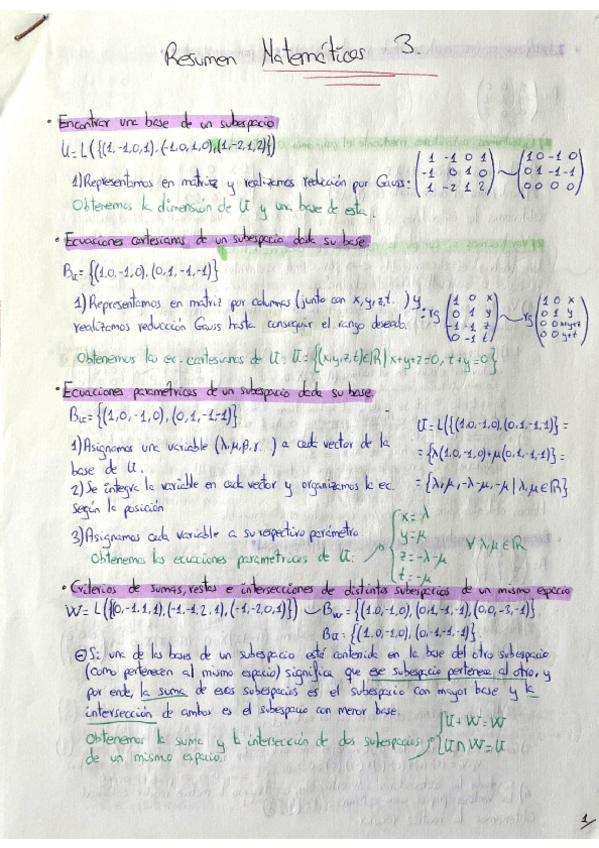 Resumen Matemáticas 3.
• Encontrar una base de un subespacio
U=L({(1,-1,0,1),(-1,0,1,0),(1,-2,1,2)})
1) Representamos en matriz y realizamos reducción por Gauss: (1 -1 0 1 / -1 0 1 0 / 1 -2 1 2) ~ (1 0 -1 0 / 0 1 -1 -1 / 0 0 0 0)
Obtenemos la dimensión de U y una base de esta.
• Ecuaciones cartesianas de un subespacio dada su base.
Bu={(1,0,-1,0),(0,1,-1,-1)}
1) Representamos en matriz por columnas (junto con x,y,z,t..) y
realizamos reducción Gauss hasta conseguir el rango deseado. : rg (1 0 x / 0 1 y / -1 -1 z / 0 -1 t) ~ rg (1 0 x / 0 1 y / 0 0 x+y+z / 0 0 y+t)
Obtenemos las ec. cartesianas de U: U={(x,y,z,t)∈R | x+y+z=0, t+y=0}
• Ecuaciones parametricas de un subespacio dada su base.
Bu={(1,0,-1,0),(0,1,-1,-1)}
1) Asignamos una variable (λ,μ,β,γ..) a cada vector de la
base de U.
2) Se integra la variable en cada vector y organizamos la ec.
según la posición
U=L({(1,0,-1,0),(0,1,-1,-1)}=
={λ(1,0,-1,0)+μ(0,1,-1,-1)}=
={λ,μ,-λ-μ,-μ | λ,μ∈R}
3) Asignamos cada variable a su respectivo parámetro
Obtenemos las ecuaciones parametricas de U:
x=λ
y=μ
z=-λ-μ
t=-μ
∀ λ,μ∈R
• Criterios de sumas, restas e intersecciones de distintos subespacios de un mismo espacio
W=L({(0,-1,1,1),(-1,-1,2,1),(-1,-2,0,1)}) ~ Bw={(1,0,-1,0),(0,1,-1,-1),(0,0,-3,-1)}
Bu={(1,0,-1,0),(0,1,-1,-1)}
Si una de las bases de un subespacio está contenida en la base del otro subespacio
(como pertenecen al mismo espacio) significa que ese subespacio pertenece al otro, y
por ende, la suma de esos subespacios es el subespacio con mayor base y la
intersección de ambos es el subespacio con menor base.
Obtenemos la suma y la intersección de dos subespacios
de un mismo espacio.
U+W=W
U∩W=U
1